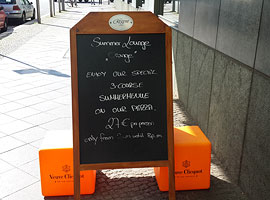 Summer Lounge
"ounge"
ENJOY OUR SPECIAL
3 COURSE
SUMMERMENUE
ON OUR PIAZZA
27 € per person
only from until
Veuve Clicquot
Veuve Clicquot